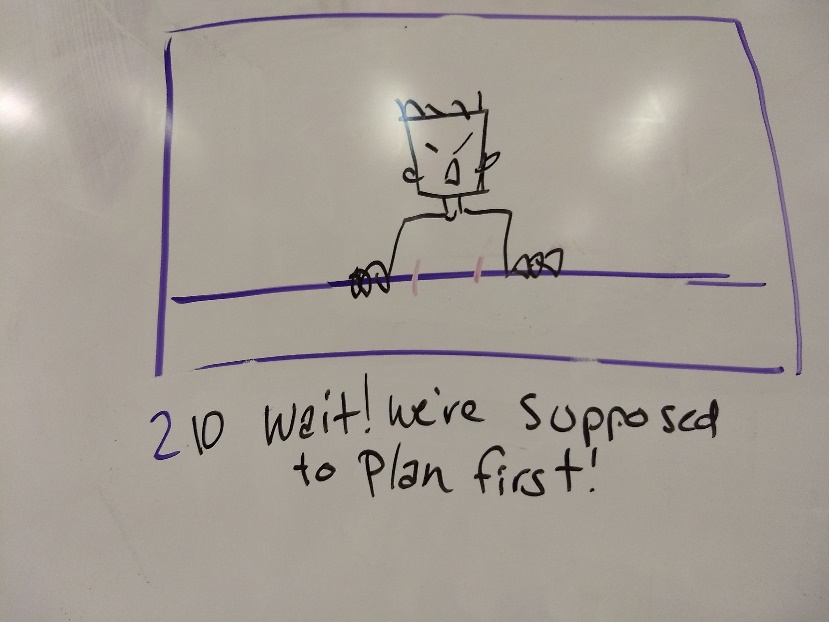 210 Wait! We're supposed
to Plan first!